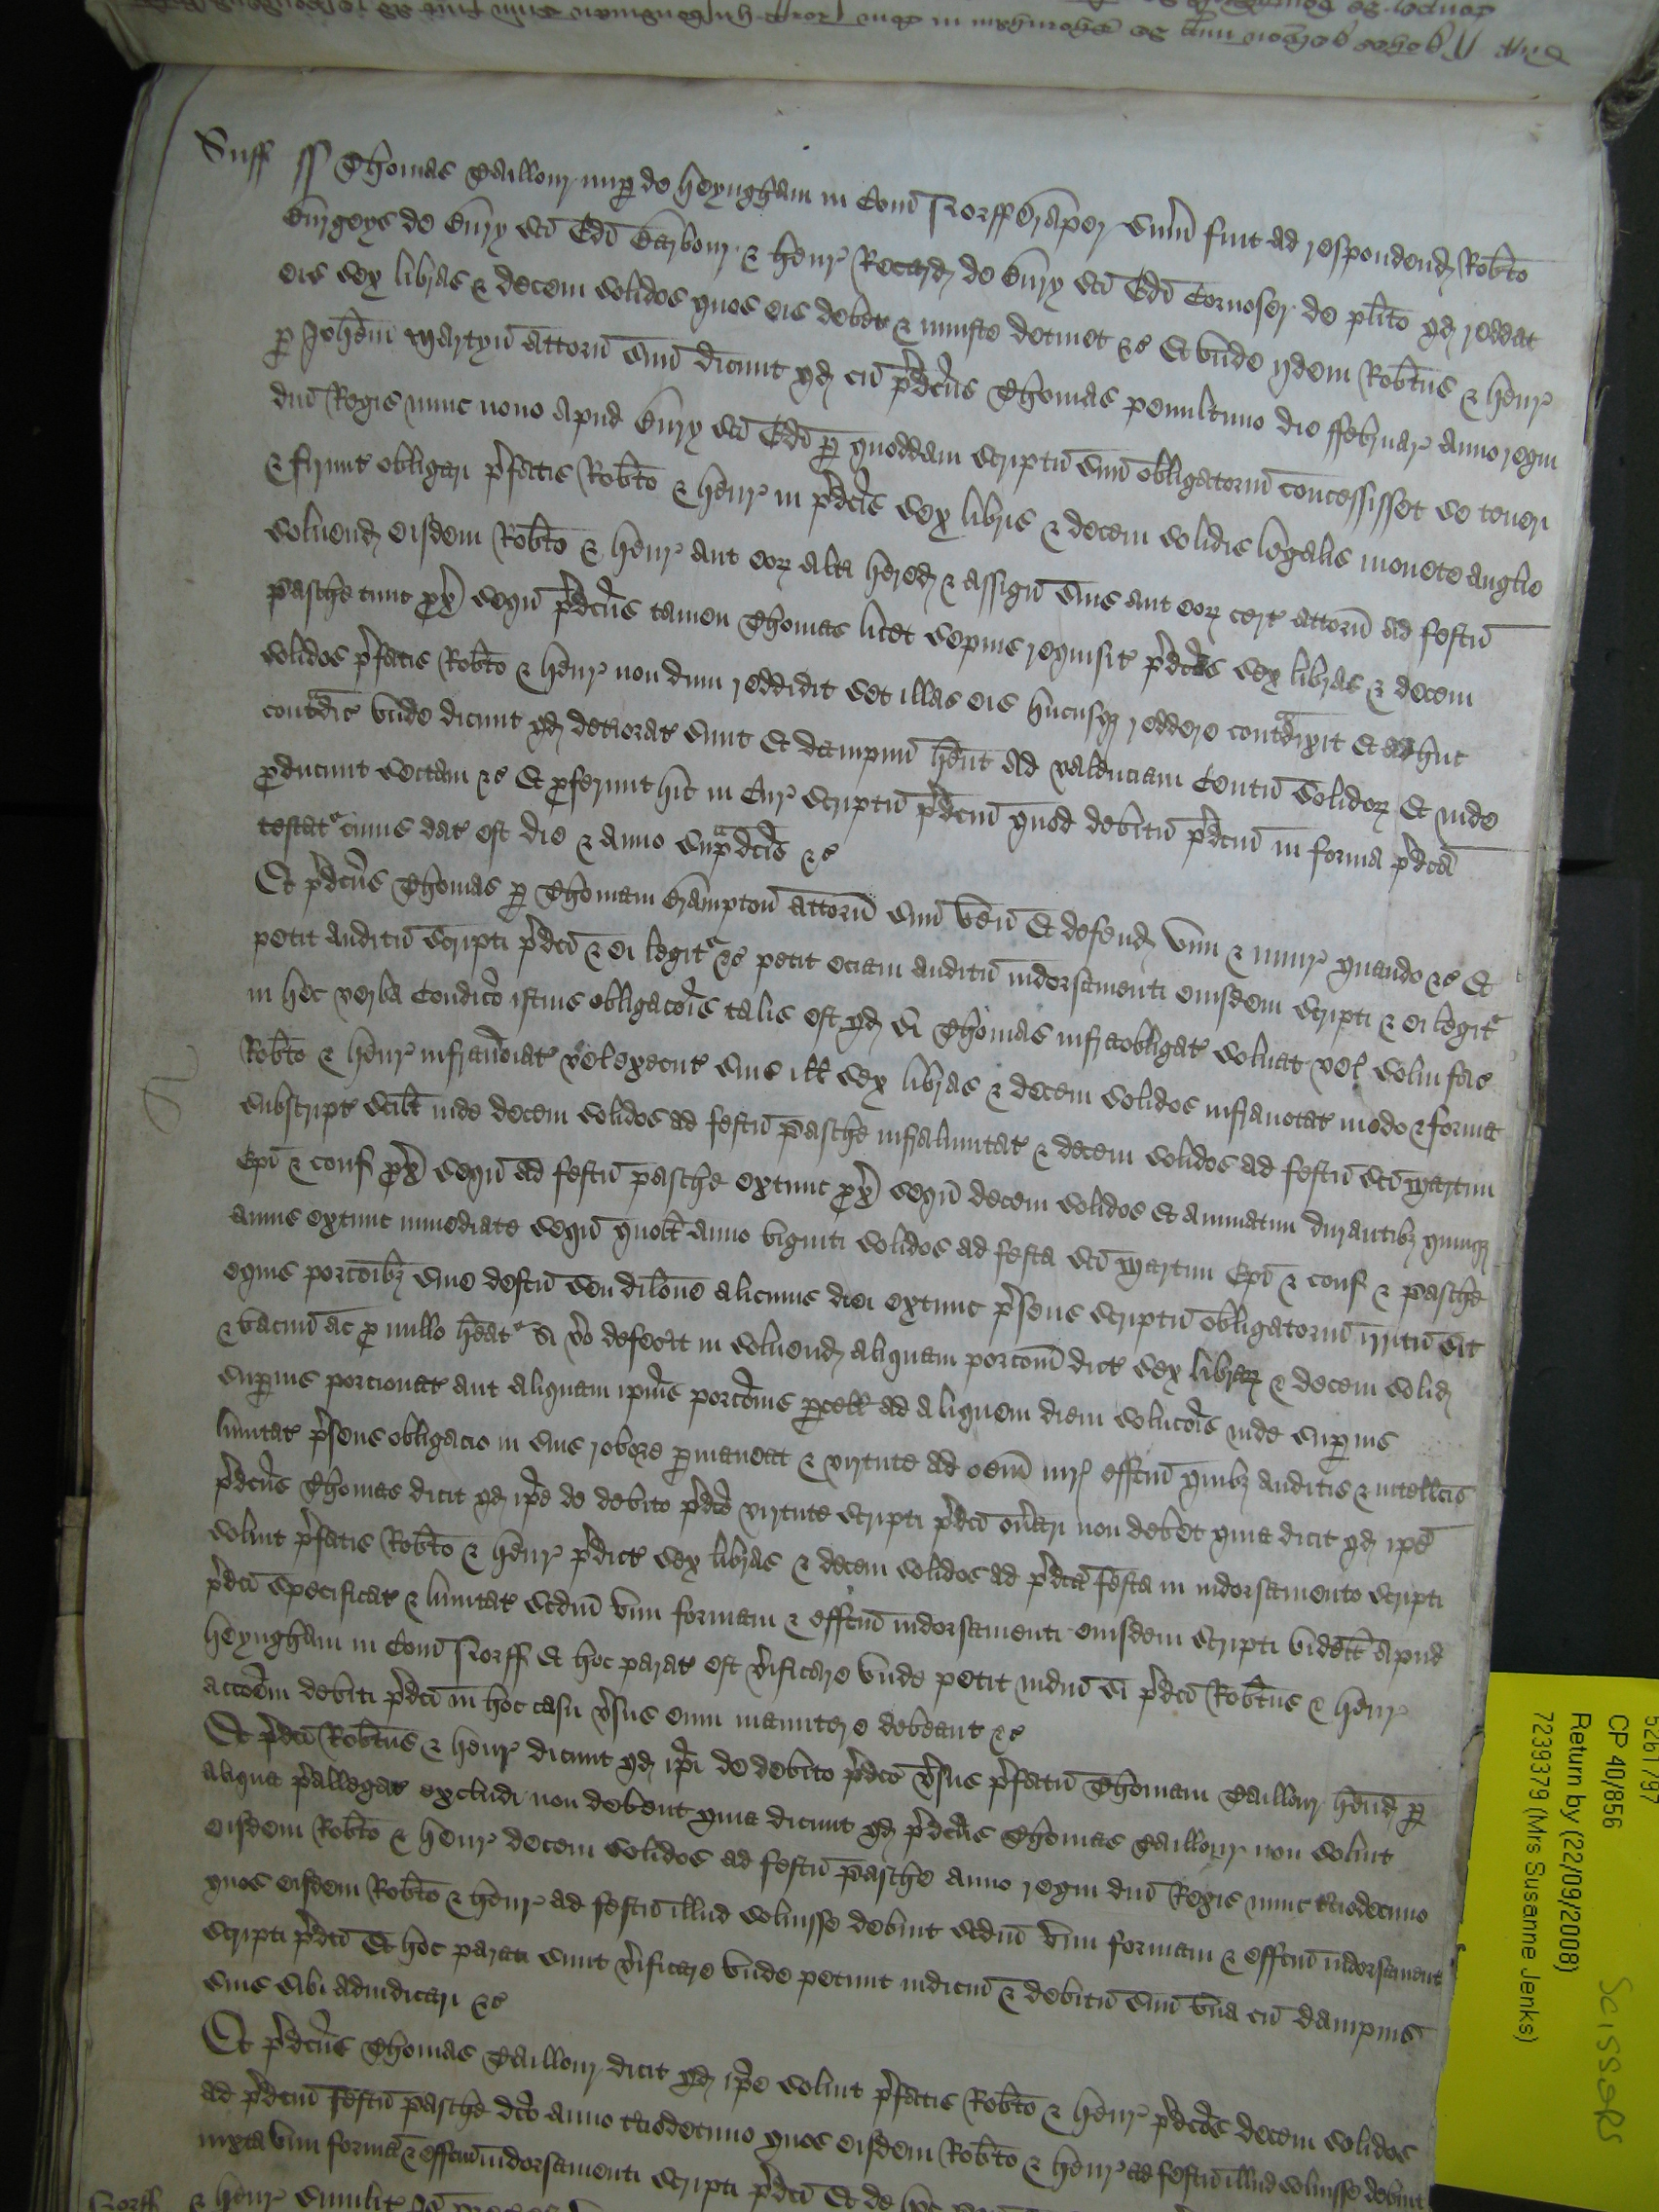 Suff ss Thomas Taillour nup de Heyngham in Com Norff Draper sum fuit ad respondend Robto
Burgeys de Bury sci Edi Barbour & Henr Rocard de Bury sci Edi Corveser de plito qd reddat
eis sex libras & decem solidos quos eis debet & iniuste detinet &c Et unde ydem Robtus & Henr
p Johem Martyn attorn suu dicunt qd cu pdcus Thomas penultimo die ffebruar anno regni
dni Regis nunc nono apud Bury sci Edi p quoddam scriptu suu obligatoriu concessisset se teneri
& firmit obligari pfatis Robto & Henr in pdcis sex libris & decem solidis legalis monete anglie
solvend eisdem Robto & Henr aut eor alti hered & assign suis aut eor cert attorn ad festu
pasche tunc px sequ pdcus tamen Thomas licet sepius requisit pdcas sex libras & decem
solidos pfatis Robto & Henr non dum reddidit set illas eis hucusq reddere contdixit et adhuc
contdic unde dicunt qd detiorat sunt Et dampnu hent ad valenciam Centu solidor Et inde
pducunt sectam &c Et pferunt hic in Cur scriptu pdcm quod debitu pdcm in forma pdca
testat cuius dat est die & anno supadcis &c
Et pdcus Thomas p Thomam Hampton attorn suu ven Et defend vim & iniur quando &c Et
petit auditu scripti pdci & ei legit &c petit eciam auditu indorsamenti eiusdem scripti & ei legit
in hec verba Condico istius obligacois talis est qd si Thomas infraobligat solvat vel solvi fac
Robto & Henr infranoiat vel execut suis ill sex libras & decem solidos infranotat modo & forma
subscript scilt inde decem solidos ad festu pasche infralimitat & decem solidos ad festu sci Martini
Epi & conf px sequ ad festu pasche extunc px sequ decem solidos et annuatim durantib quinq
annis extunc immediate sequ quolt anno viginti solidos ad festa sci Martini Epi & conf & pasche
equis porcoib sine defcu seu dilone alicuius diei extunc psens scriptu obligatoriu irritu sit
& vacuu ac p nullo heat Si vo defecit in solvend aliquam porcom dict sex librar & decem solid
superius porcionat aut aliquam ipius porcois pcell ad aliquem diem solucois inde superius
limitat psens obligacio in suis robore pmaneat & virtute ad oem iur effcm quib auditis & intellcis
pdcus Thomas dicit qd ipe de debito pdco virtute scripti pdci onari non debet quia dicit qd ipe
solvit pfatis Robto & Henr pdict sex libras & decem solidos ad pdca festa in indorsamento scripti
pdci specificat & limitat scdm vim formam & effcm indorsamenti eiusdem scripti vidett apud
Heyngham in Com Norff Et hoc parat est vificare unde petit iudm si pdci Robtus & Henr
accoem debiti pdci in hoc casu vsus eum manutere debeant &c
Et pdci Robtus & Henr dicunt qd ipi de debito pdco vsus pfatu Thomam Taillour hend p
aliqua pallegat excludi non debent quia dicunt qd pdcus Thomas Taillour non solvit
eisdem Robto & Henr decem solidos ad festu pasche anno regni dni Regis nunc tciodecimo
quos eisdem Robto & Henr ad festu illud solvisse debuit scdm vim formam & effcm indorsament
scripti pdci Et hoc parati sunt vificare unde petunt iudiciu & debitu suu una cu dampnis
suis sibi adiudicari &c
Et pdcus Thomas Taillour dicit qd ipe solvit pfatis Robto & Henr pdcos decem solidos
ad pdcm festu pasche dco anno tciodecimo quos eisdem Robto & Henr ad festu illud solvisse debuit
iuxta vim forma & effcm indorsamenti scripti pdci Et de hoc
Norff & Henr similit
5261797
CP 40/856
Return by (22/09/2008)
7239379 (Mrs Susanne Jenks)
SCISSORS